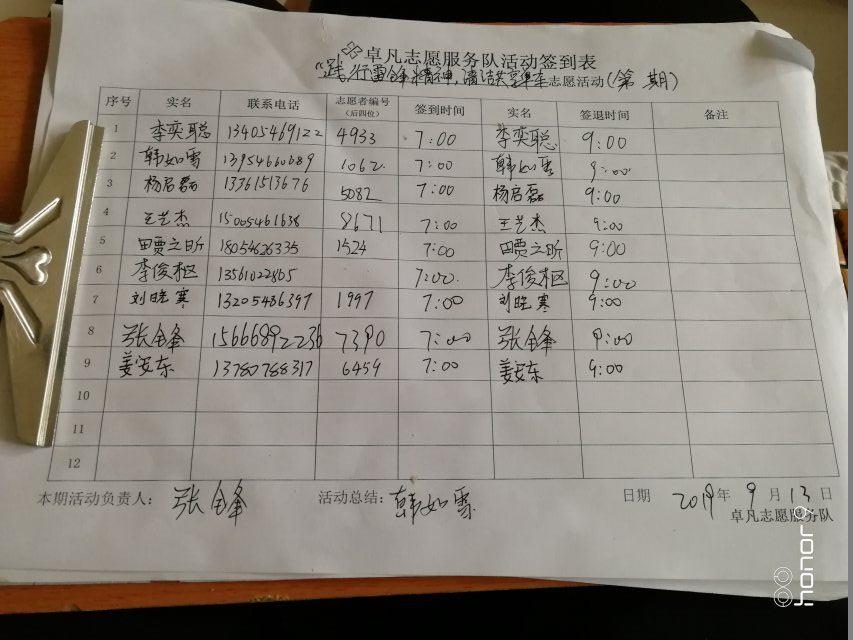 卓凡志愿服务队活动签到表
"践行雷锋精神,清洁共享单车志愿活动(第 期)
序号 实名 联系电话 志愿者编号(后四位) 签到时间 实名 签退时间 备注
1 李奕聪 13405469122 4933 7:00 李奕聪 9:00
2 韩如雪 13954660689 1062 7:00 韩如雪 9:00
3 杨启磊 13361513676 5082 7:00 杨启磊 9:00
4 王艺杰 15005461638 8671 7:00 王艺杰 9:00
5 田贾之昕 18054626335 1524 7:00 田贾之昕 9:00
6 李俊枢 13561022865 7:00 李俊枢 9:00
7 刘晓寒 13205486397 1997 7:00 刘晓寒 9:00
8 张锋 15666892236 7390 7:00 张锋 9:00
9 姜安东 13780788317 6459 7:00 姜安东 9:00
10
11
12
本期活动负责人: 张锋 活动总结: 韩如雪 日期 2019年9月13日
卓凡志愿服务队
honor 9